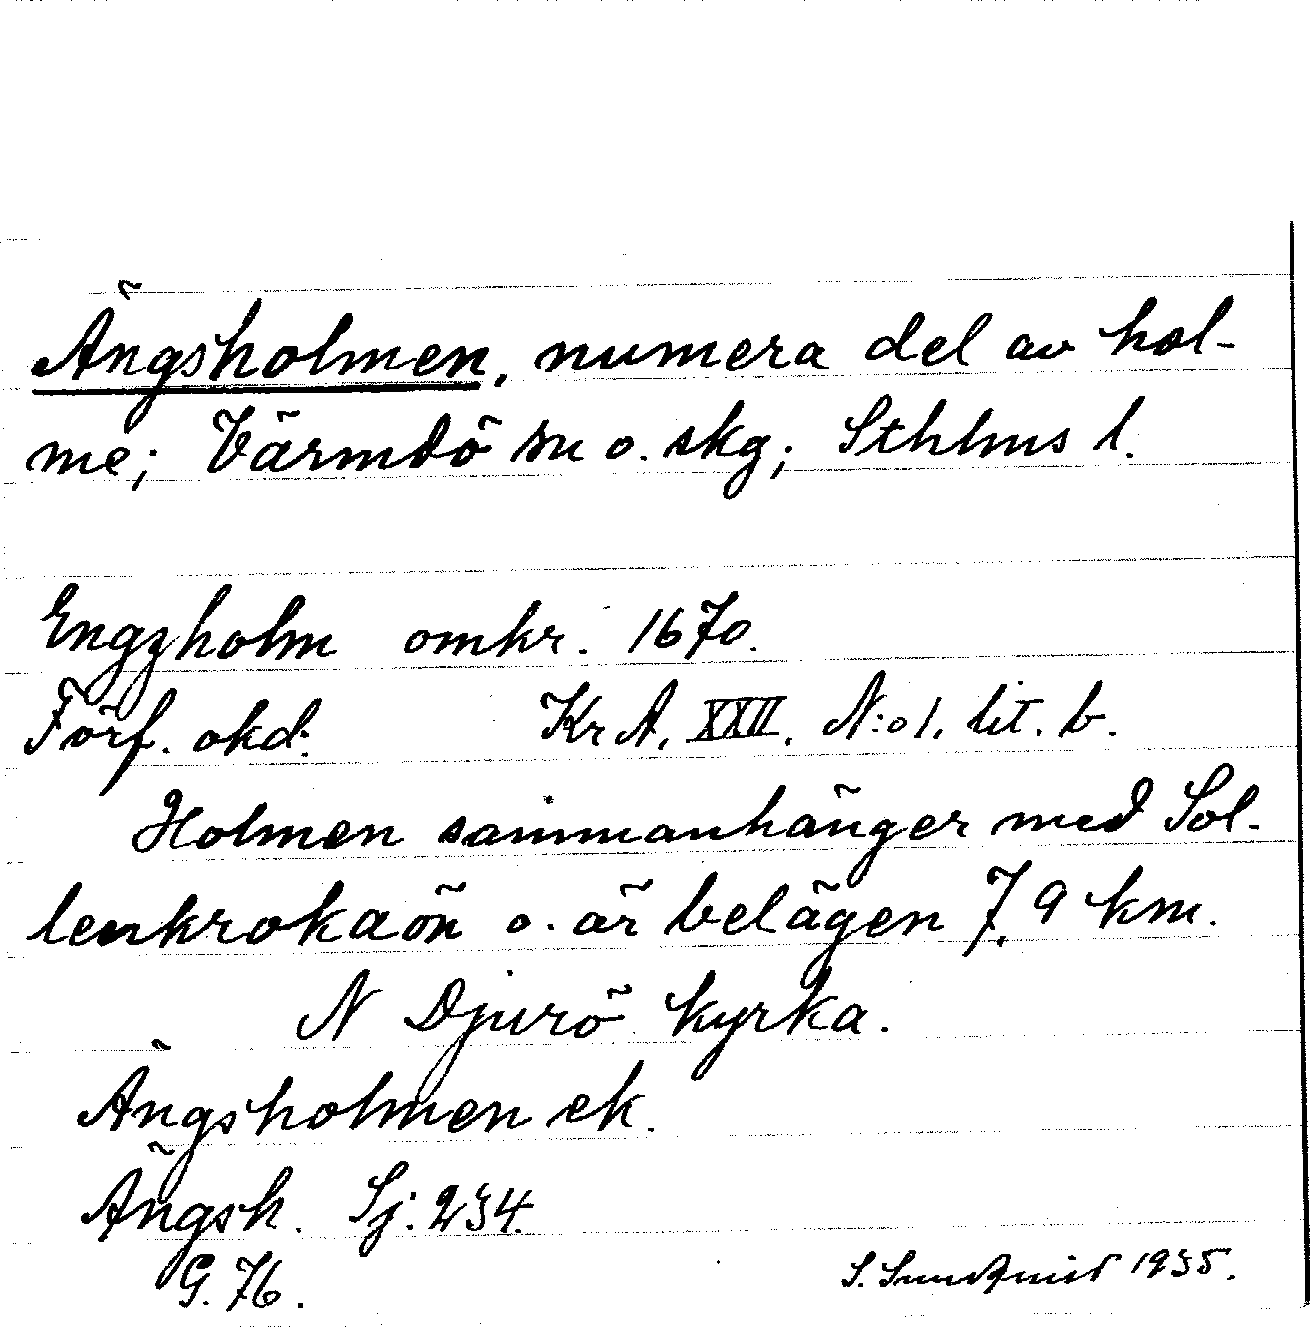 Ängsholmen, numera del av hol-
me; Värmdö sn o. skg; Sthlms l.
Engzholm omkr. 1670.
Förf. okd. Kr A, XXII, N:o 1. lit. b.
Holmen sammanhänger med Sol-
lenkrokaön o. är belägen 7,9 km.
N Djurö kyrka.
Ängsholmen ek.
Ängsh. Sj. 234.
G. 76.
S. Sundquist 1935.